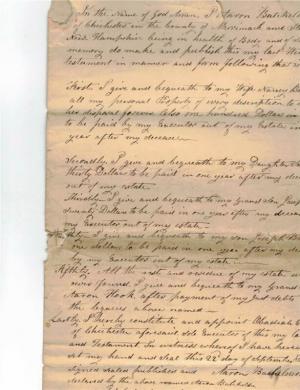 In the Name of God Amen, I Aaron Batchel
of Chichester in the County of Merrimack and
New Hampshire being in health of Body and of
memory do make and publish this my last
testament in manner and form following that
First. I give and bequeath to my Wife Nancy
all my personal Property of every description to
her disposal forever also one hundred Dollars in
to be paid by my Executor out of my Estate
year after my decease
Secondly I give and bequeath to my Daughter
thirty Dollars to be paid in one year after my de
out of my estate.
Thirdly I give and bequeath to my Grand Son Joseph
twenty Dollars to be paid in one year after my decea
my Executor out of my estate
I give and bequeath to my son Joseph
one dollar to be paid in one year after my de
by my Executor out of my estate.
Fifthly. All the rest and residue of my estate
ever found, I give and bequeath to my Grand
Aaron Hook after payment of my just debts
the legacies above named
Lastly I Hereby constitute and appoint
of Chichester aforesaid sole Executor of this my la
and Testament In witness whereof I have
set my hand and Seal this 22 day of September
signed sealed published and Aaron
declared by the above named Aaron Batchelder